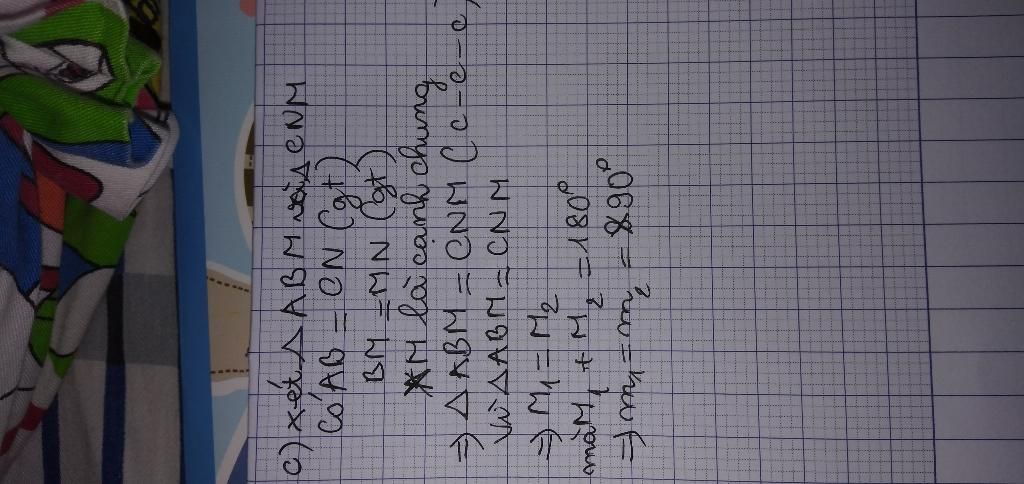 c) xét △ ABM với △ CNM
có AB = CN (gt)
BM = MN (gt)
M là cạnh chung
=> △ ABM = CNM (c-c-c)
vì △ ABM = CNM
=> M1 = M2
mà M1 + M2 = 180°
=> m1 = m2 = 90°